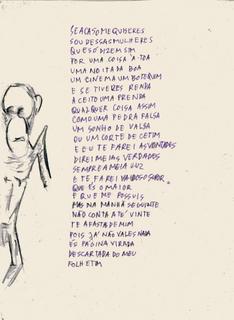 SE ACASO ME QUISERES
SOU DESSAS MULHERES
QUE SÓ DIZEM SIM
POR UMA COISA À-TOA
UMA NOITADA BOA
UM CINEMA UM BOTEQUIM
E SE TIVERES RENDA
ACEITO UMA PRENDA
QUALQUER COISA ASSIM
COMO UMA PEDRA FALSA
UM SONHO DE VALSA
OU UM CORTE DE CETIM
E EU TE FAREI AS VONTADES
DIREI MEIAS VERDADES
SEMPRE A MEIA LUZ
E TE FAREI VAIDOSO SUPOR
QUE ÉS O MAIOR
E QUE ME POSSUIS
MAS NA MANHÃ SEGUINTE
NÃO CONTA ATÉ VINTE
TE AFASTA DE MIM
POIS JÁ NÃO VALES NADA
ÉS PÁGINA VIRADA
DESCARTADA DO MEU
FOLHETIM